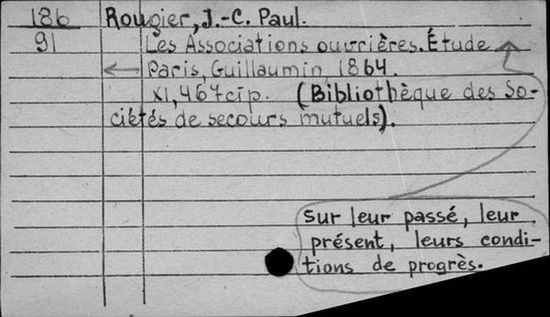 186 Rougier, J.-C. Paul.
91 Les Associations ouvrières. Étude
Paris, Guillaumin, 1864.
XI, 467cip. (Bibliothèque des So-
ciétés de secours mutuels).
sur leur passé, leur
présent, leurs condi-
tions de progrès.